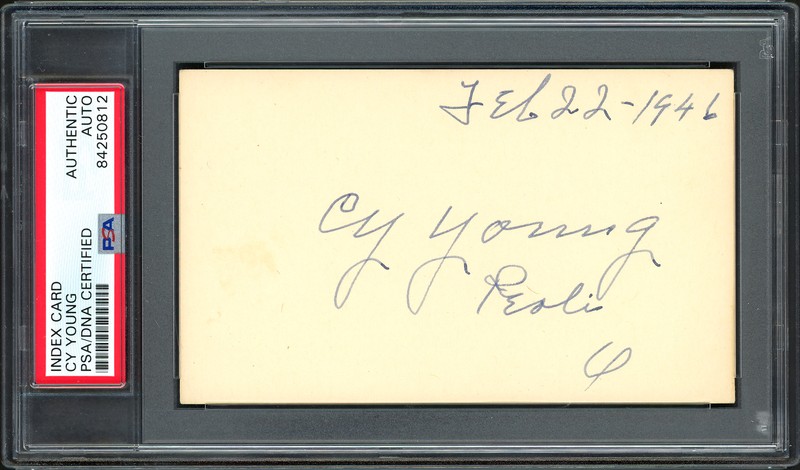 INDEX CARD
CY YOUNG
PSA/DNA CERTIFIED
AUTHENTIC
AUTO
84250812
PSA
Feb 22-1946
Cy Young
Peoli
O